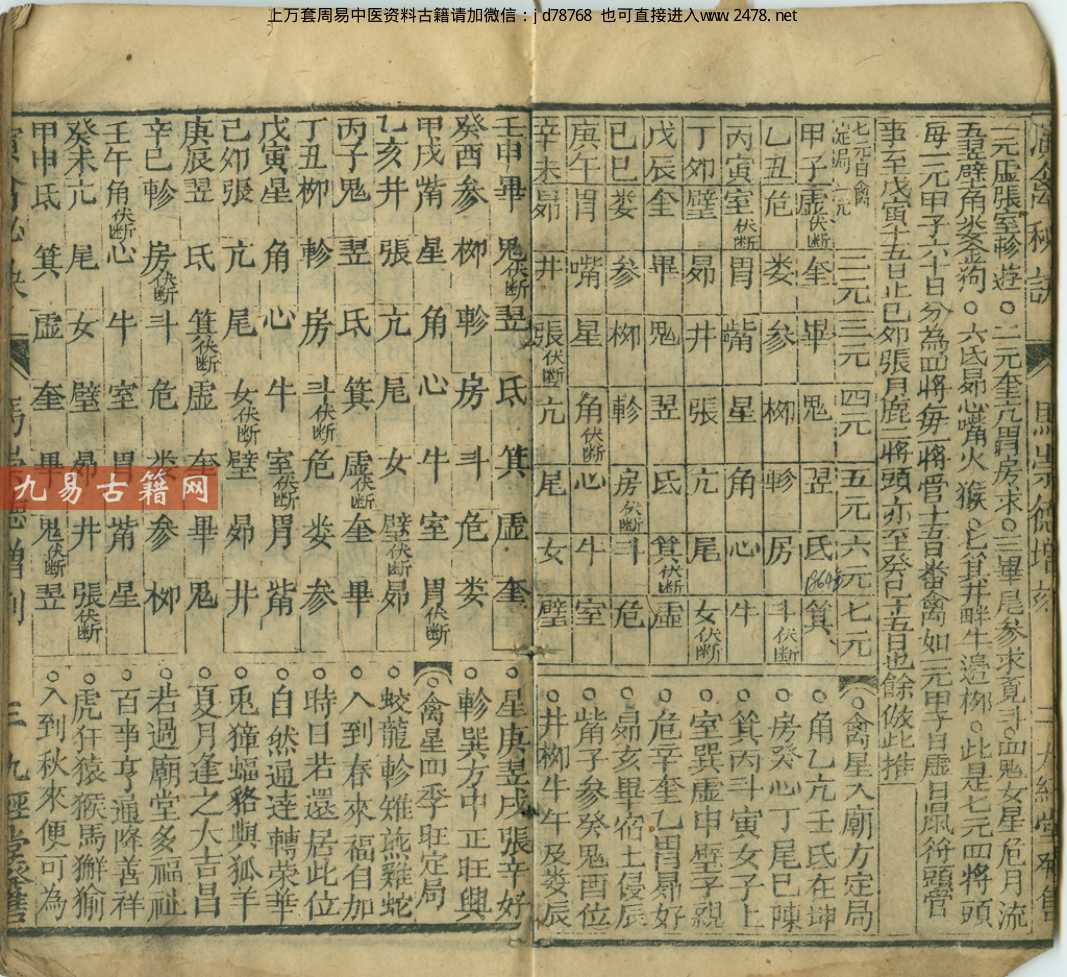 上万套周易中医资料古籍请加微信：jd78768 也可直接进入www.2478.net
演禽秘訣 馬崇德增刻 二 九經堂發售
一元虛張室軫遊○二元奎亢胃房求○三畢尾參求覓斗○四鬼女星危月流
五翌壁角婁金狗○六氐昴心嘴火猴○七箕井畔牛邉栁○此是七元四將頭
每一元甲子六十日分為四將每一將管十五日番禽如一元甲子日虛日鼠符頭管
事至戊寅十五日止己夘張月鹿一將頭亦至癸巳十五日也餘倣此推
七元日禽定局 一元 二元 三元 四元 五元 六元 七元
甲子 虛伏断 奎 畢 鬼 翌 氐 1864年 箕
乙丑 危 娄 參 栁 軫 房 斗伏断
丙寅 室伏断 胃 觜 星 角 心 牛
丁夘 壁 昴 井 張 亢 尾 女伏断
戊辰 奎 畢 鬼 翌 氐 箕伏断 虛
己巳 娄 參 栁 軫 房伏断 斗 危
庚午 胃 嘴 星 角伏断 心 牛 室
辛未 昴 井 張伏断 亢 尾 女 壁
○禽星入廟方定局
○角乙亢壬氐在坤
○房癸心丁尾巳陳
○箕丙斗寅女子上
○室巽虛申壁子親
○危辛奎乙胃昴好
○昴亥畢宿土優辰
○觜子參癸鬼酉位
○井栁牛午及娄辰
壬申 畢 鬼伏断 翌 氐 箕 虛 奎
癸酉 參 栁 軫 房 斗 危 娄
甲戌 觜 星 角 心 牛 室 胃伏断
乙亥 井 張 亢 尾 女 壁伏断 昴
丙子 鬼 翌 氐 箕 虛伏断 奎 畢
丁丑 栁 軫 房 斗伏断 危 娄 參
戊寅 星 角 心 牛 室伏断 胃 觜
己夘 張 亢 尾 女伏断 壁 昴 井
庚辰 翌 氐 箕伏断 虛 奎 畢 鬼
辛巳 軫 房伏断 斗 危 娄 參 栁
壬午 角伏断 心 牛 室 胃 觜 星
癸未 亢 尾 女 壁 昴 井 張伏断
甲申 氐 箕 虛 奎 畢 鬼伏断 翌
○星庚翌戌張辛好
○軫巽方中正旺興
○禽星四季旺定局
○蛟龍軫雉熊雞蛇
○入到春來福自加
○時日若還居此位
○自然通達轉荣華
○兎獐蝠貉與狐羊
○夏月逢之大吉昌
○若過廟堂多福祉
○百事亨通降善祥
○虎犴猿猴馬獬㺄
○入到秋來便可為
演禽秘訣 馬崇德增刊 三 九經堂發售
九易古籍网